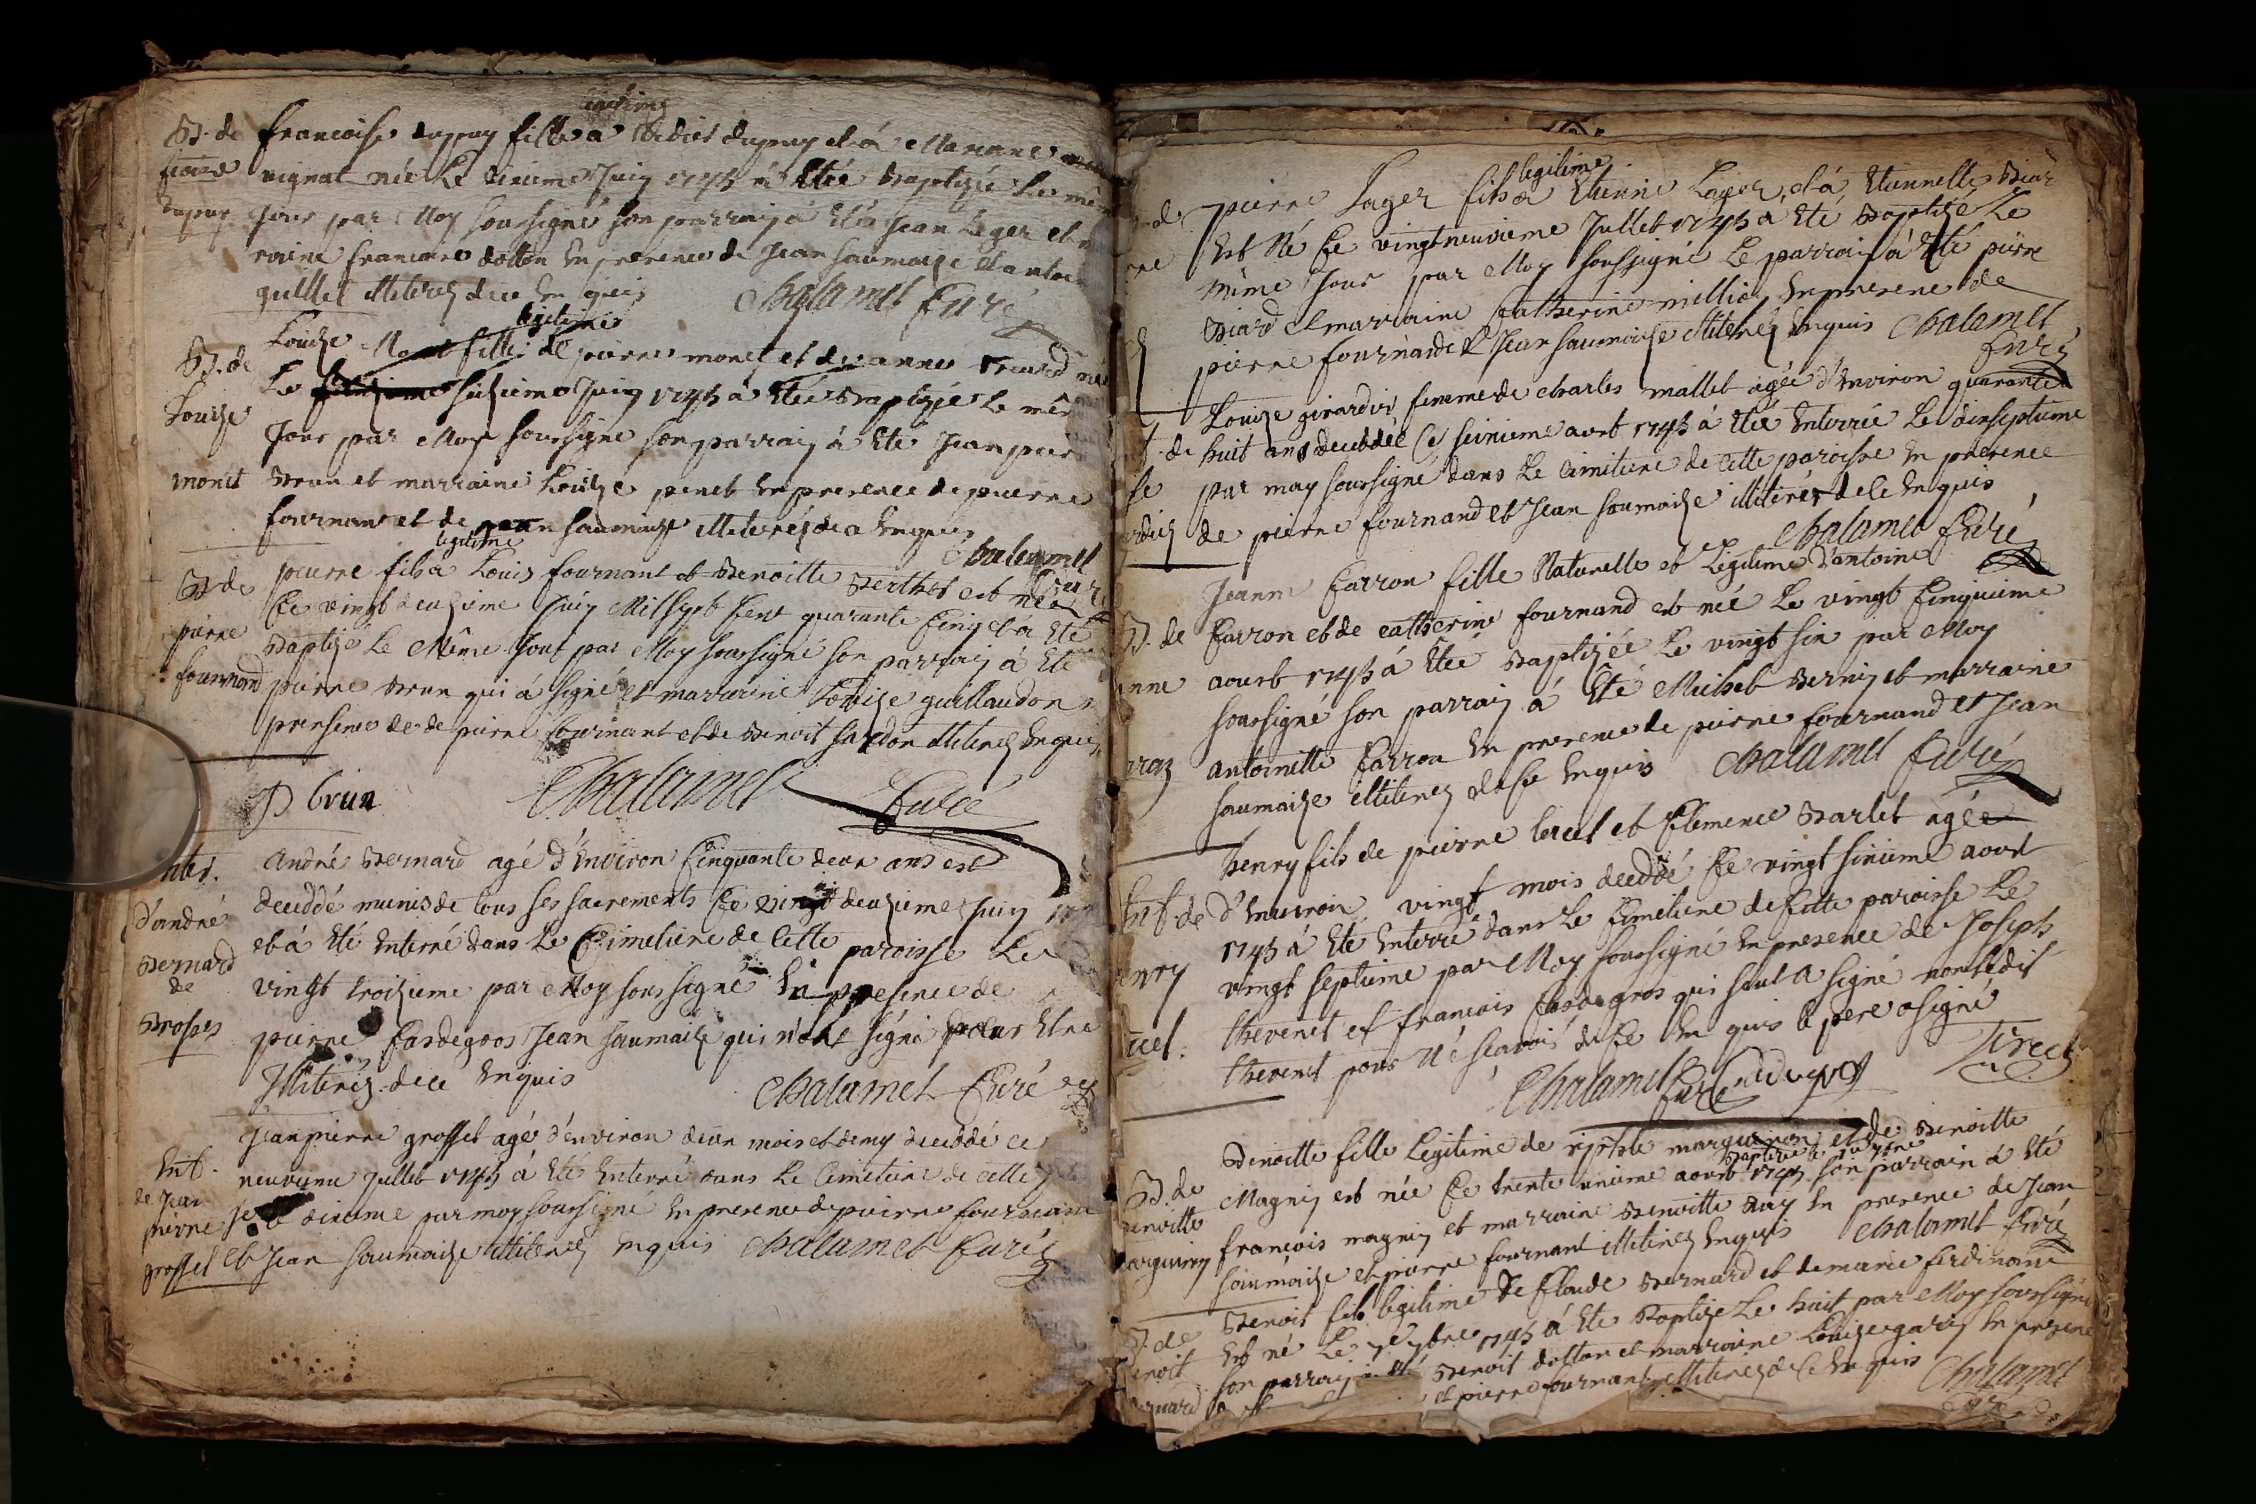 legitime
B. de francoise dupuy fille a Bediet dupuy et á Mariane
vignat née Le dixieme Juin 1745 á Etée Baptizée Le mê
dupuy Jour par Moy soussigné son parrain á Eté Jean Leger et
raine francoise dotton En presence de Jean saumaize Et antoi
quillet illiterez de ce En quis Chalamel Curé
legitime
B. de Louize Monet fille de pierre monet et de anne née
Le seizieme Juin 1745 á Etée Baptizée Le mê
Louize Jour par Moy soussigné son parrain á Eté Jean pierre
monet Brun et marraine Louize penet En presence de pierre
fournant et de Jean saumaize illiteréz de ce Enquis
Chalamel Curé
legitime
B. de pierre fils á Louis fournant et Benoitte Berthet est né
Ce vingt deuzieme Juin Mil sept Cent quarante Cinq et á Eté
pierre Baptizé Le Même Jour par Moy soussigné son parrain á Eté
fournand pierre Brun qui á signé et marraine Louize guillaudon
presence de de pierre fournant et de Benoit sardon illiterez Enquis
P brun Chalamel Curé
Ent. André Bernard agé d'Environ Cinquante deux ans est
d'andré deceddé munis de tous ses sacrements Ce vingt deuzieme Juin
Bernard et á Eté Enterré dans Le Cimetiere de Cette paroisse Le
de vingt troizieme par Moy soussigné En presence de
Brosses pierre Cardegros Jean saumaize qui n'ont signé pour Etre
Illiteréz de ce Enquis Chalamel Curé
Ent. Jean pierre grosset agé d'environ deux mois et demy decedde ce
de Jean neuvieme Juillet 1745 á Eté Enterré dans Le Cimetiere de cette
pierre dixieme par moy soussigné En presence de pierre fournant
grosset Et Jean saumaize illiterez Enquis Chalamel Curé
legitime
pierre Lager fils á Etienne Lager, et á Etiennette Biard
Est Né Ce vingtneuvieme Juillet 1745 á Eté Baptizé Le
même Jour par Moy soussigné Le parrain á Eté pierre
Biard et marraine Catherine millio, En presence de
pierre fournand et Jean saumaize illiterez Enquis Chalamel
Curé
Louize girardin femme de Charles mallet agée d'Environ quarante
huit ans decedée Ce seizieme aout 1745 á Etée Enterrée Le dixseptieme
par moy soussigné dans Le Cimitiere de Cette paroisse En presence
de pierre fournand et Jean soumaize illiterés de ce Enquis
Chalamel Curé
Jeanne Carron fille Naturelle et Legitime d'antoine
B. de Carron et de Catherine fournand est née Le vingt Cinquieme
aoust 1745 á Etée Baptizée Le vingt six par Moy
soussigné son parrain á Eté Michel Bernin et marraine
antoinette Carron En presence de pierre fournand et Jean
saumaize illiterez de ce Enquis Chalamel Curé
henry fils de pierre tircel et Clemence Barlet agée
Ent. de d'Environ vingt mois decedé Ce vingt sixieme aout
1745 á Eté Enterré dans Le Cimetiere de Cette paroisse Le
vingt septieme par Moy soussigné En presence de Joseph
thevenet et francois Cardegros qui seul a signé non ledit
thevenet pour Né sçavoir de Ce En quis le pere a signé
Chalamel Curé Tircel
Benoitte fille Legitime de et de Benoitte
B. de Magnin est née Ce trente unieme aoust 1745. son parrain á Eté
Benoitte francois magnin et marraine Benoitte En presence de Jean
saumaize et pierre fournant illiterez Enquis Chalamel Curé
Benoit fils legitime de Claude Bernard et de marie ferdinand
B. de Est né Le 7bre 1745 á Eté Baptizé Le huit par Moy soussigné
Benoit son parrain á Eté Benoit dotton et marraine Louize garin En presence
et pierre fournant illiterez de Ce Enquis Chalamel
Curé